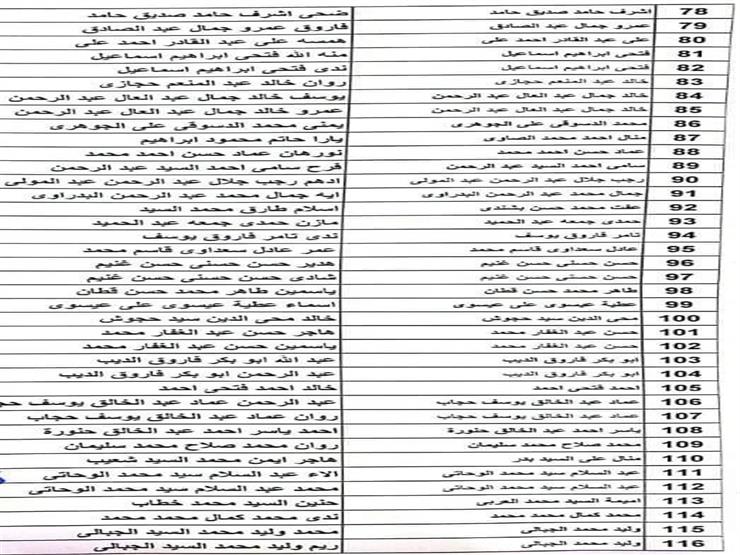 78 اشرف حامد صديق حامد ضحى اشرف حامد صديق حامد
79 عمرو جمال عبد الصادق فاروق عمرو جمال عبد الصادق
80 على عبد القادر احمد على همسه على عبد القادر احمد على
81 فتحى ابراهيم اسماعيل منه الله فتحى ابراهيم اسماعيل
82 فتحى ابراهيم اسماعيل ندى فتحى ابراهيم اسماعيل
83 خالد عبد المنعم حجازى روان خالد عبد المنعم حجازى
84 خالد جمال عبد العال عبد الرحمن يوسف خالد جمال عبد العال عبد الرحمن
85 خالد جمال عبد العال عبد الرحمن عمرو خالد جمال عبد العال عبد الرحمن
86 محمد الدسوقى على الجوهرى يمنى محمد الدسوقى على الجوهرى
87 منال احمد محمد الصاوى يارا حاتم محمود ابراهيم
88 عماد حسن احمد محمد نورهان عماد حسن احمد محمد
89 سامى احمد السيد عبد الرحمن فرح سامى احمد السيد عبد الرحمن
90 رجب جلال عبد الرحمن عبد المولى ادهم رجب جلال عبد الرحمن عبد المولى
91 جمال محمد عبد الرحمن البدراوى ايه جمال محمد عبد الرحمن البدراوى
92 عفت محمد حسن بشندى اسلام طارق محمد السيد
93 حمدى جمعه عبد الحميد مازن حمدى جمعه عبد الحميد
94 تامر فاروق يوسف ندى تامر فاروق يوسف
95 عادل سعداوى قاسم محمد عمر عادل سعداوى قاسم محمد
96 حسن حسنى حسن غنيم هدير حسن حسنى حسن غنيم
97 حسن حسنى حسن غنيم شادى حسن حسنى حسن غنيم
98 طاهر محمد حسن قطان ياسمين طاهر محمد حسن قطان
99 عطية عيسوى على عيسوى اسماء عطية عيسوى على عيسوى
100 محى الدين سيد حجوش خالد محى الدين سيد حجوش
101 حسن عبد الغفار محمد هاجر حسن عبد الغفار محمد
102 حسن عبد الغفار محمد ياسمين حسن عبد الغفار محمد
103 ابو بكر فاروق الديب عبد الله ابو بكر فاروق الديب
104 ابو بكر فاروق الديب عبد الرحمن ابو بكر فاروق الديب
105 احمد فتحى احمد خالد احمد فتحى احمد
106 عماد عبد الخالق يوسف حجاب عبد الرحمن عماد عبد الخالق يوسف
107 عماد عبد الخالق يوسف حجاب روان عماد عبد الخالق يوسف حجاب
108 ياسر احمد عبد الخالق حنورة احمد ياسر احمد عبد الخالق حنورة
109 محمد صلاح محمد سليمان روان محمد صلاح محمد سليمان
110 منال على السيد بدر هاجر ايمن محمد السيد شعيب
111 عبد السلام سيد محمد الوحاتى الاء عبد السلام سيد محمد الوحاتى
112 عبد السلام سيد محمد الوحاتى محمد عبد السلام سيد محمد الوحاتى
113 اميمة السيد محمد العربى حنين السيد محمد خطاب
114 محمد كمال محمد محمد ندى محمد كمال محمد محمد
115 وليد محمد الجبالى محمد وليد محمد السيد الجبالى
116 وليد محمد الجبالى ريم وليد محمد السيد الجبالى